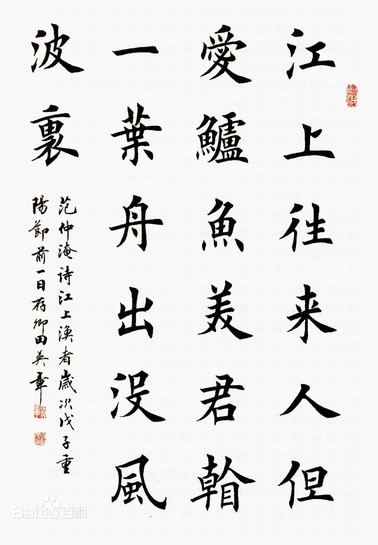 江上往来人但
愛鱸魚美君看
一葉舟出没風
波裏
范仲淹诗江上漁者歲次戊子重
陽節前一日存卿田英章
Baidu百科